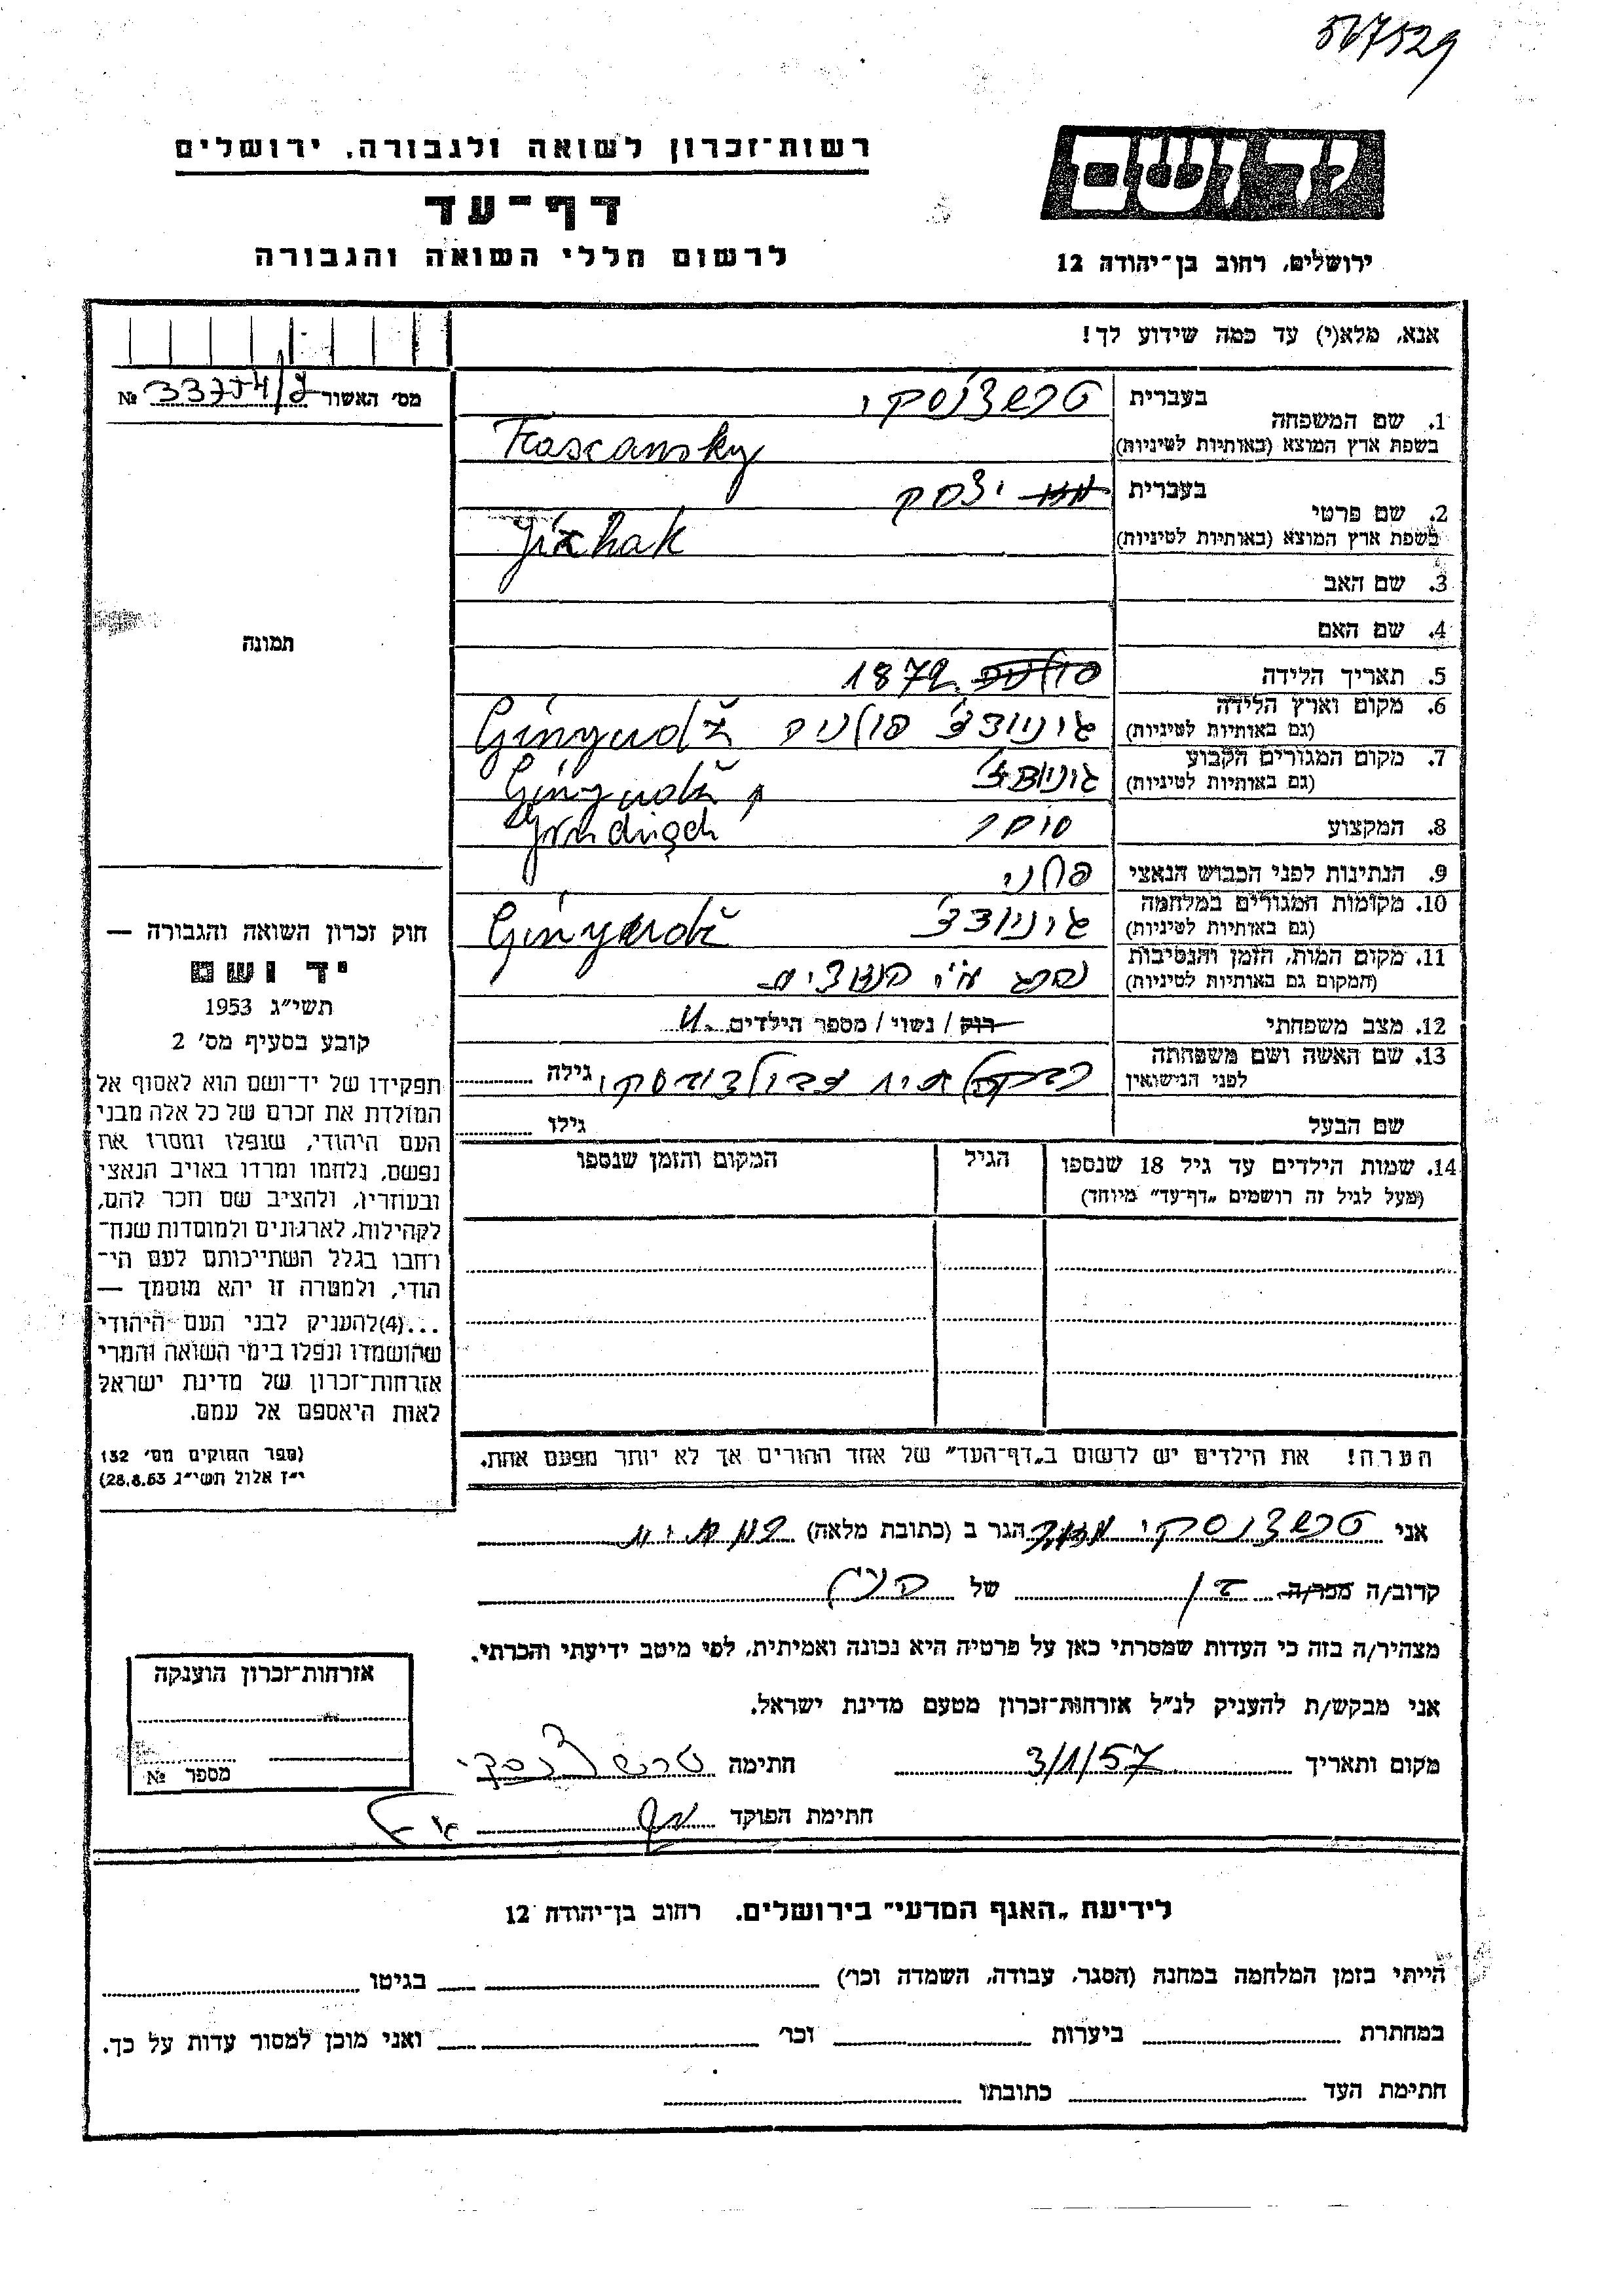 567529
ידושם
רשות־זכרון לשואה ולגבורה, ירושלים
דף־עד
לרשום חללי השואה והגבורה
ירושלים, רחוב בן־יהודה 12
אנא, מלא(י) עד כמה שידוע לך!
מס' האשור № 33754/
1. שם המשפחה
בעברית טרשצ'נסקי
בשפת ארץ המוצא (באותיות לטיניות) Trascansky
2. שם פרטי
בעברית יצחק
בשפת ארץ המוצא (באותיות לטיניות) Jizhak
3. שם האב
4. שם האם
תמונה
5. תאריך הלידה 1872
6. מקום וארץ הלידה
(גם באותיות לטיניות) גיניונדז' פולניה Ginyudž
7. מקום המגורים הקבוע
(גם באותיות לטיניות) גיניונדז' Ginyudž
8. המקצוע סוחר
9. הנתינות לפני הכבוש הנאצי פולני
10. מקומות המגורים במלחמה
(גם באותיות לטיניות) גיניונדז' Ginyudž
11. מקום המות, הזמן והנסיבות
(המקום גם באותיות לטיניות) נהרג ע"י הנאצים
12. מצב משפחתי רוק / נשוי / מספר הילדים
13. שם האשה ושם משפחתה
לפני הנישואין גילה
שם הבעל גילו
14. שמות הילדים עד גיל 18 שנספו הגיל המקום והזמן שנספו
(מעל לגיל זה רושמים „דף־עד" מיוחד)
הערה! את הילדים יש לרשום ב„דף־העד" של אחד ההורים אך לא יותר מפעם אחת.
חוק זכרון השואה והגבורה —
יד ושם
תשי"ג 1953
קובע בסעיף מס' 2
תפקידו של יד־ושם הוא לאסוף אל
המולדת את זכרם של כל אלה מבני
העם היהודי, שנפלו ומסרו את
נפשם, נלחמו ומרדו באויב הנאצי
ובעוזריו, ולהציב שם וזכר להם,
לקהילות, לארגונים ולמוסדות שנח־
רבו בגלל השתייכותם לעם הי־
הודי, ולמטרה זו יהא מוסמך —
...(4)להעניק לבני העם היהודי
שהושמדו ונפלו בימי השואה והמרי
אזרחות־זכרון של מדינת ישראל
לאות היאספם אל עמם.
(ספר החוקים מס' 132
י"ז אלול תשי"ג 28.8.53)
אני טרשצ'נסקי הגר ב (כתובת מלאה)
קרוב/ה מכר/ה בן של הנ"ל
מצהיר/ה בזה כי העדות שמסרתי כאן על פרטיה היא נכונה ואמיתית, לפי מיטב ידיעתי והכרתי.
אני מבקש/ת להעניק לנ"ל אזרחות־זכרון מטעם מדינת ישראל.
מקום ותאריך 3/1/57 חתימה טרשצ'נסקי
חתימת הפוקד
אזרחות־זכרון הוענקה
מספר №
לידיעת „האגף המדעי" בירושלים, רחוב בן־יהודה 12
הייתי בזמן המלחמה במחנה (הסגר, עבודה, השמדה וכו') בגיטו
במחתרת ביערות וכו' ואני מוכן למסור עדות על כך.
חתימת העד כתובתו